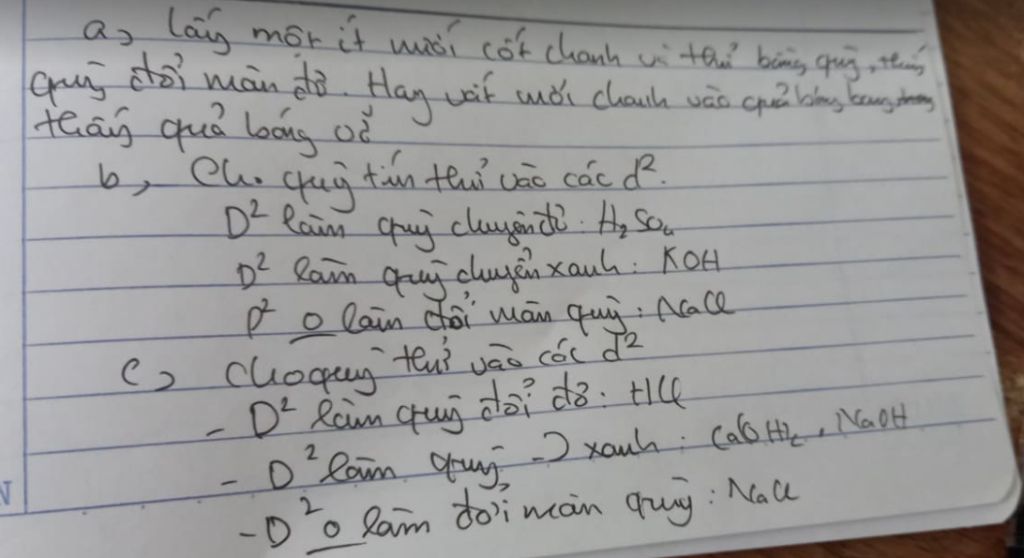 a, Lấy một ít nước cốt chanh và thử bằng quỳ, thấy
quỳ đổi màu đỏ. Hay vắt nước chanh vào quả bóng bay, cũng
thấy quả bóng nổ
b, Cho quỳ tím thử vào các d².
D² làm quỳ chuyển đỏ: H₂SO₄
D² làm quỳ chuyển xanh: KOH
D² o làm đổi màu quỳ: NaCl
c, Cho quỳ thử vào các d²
- D² làm quỳ đổi đỏ: HCl
- D² làm quỳ -> xanh: Ca(OH)₂, NaOH
- D² o làm đổi màu quỳ: NaCl